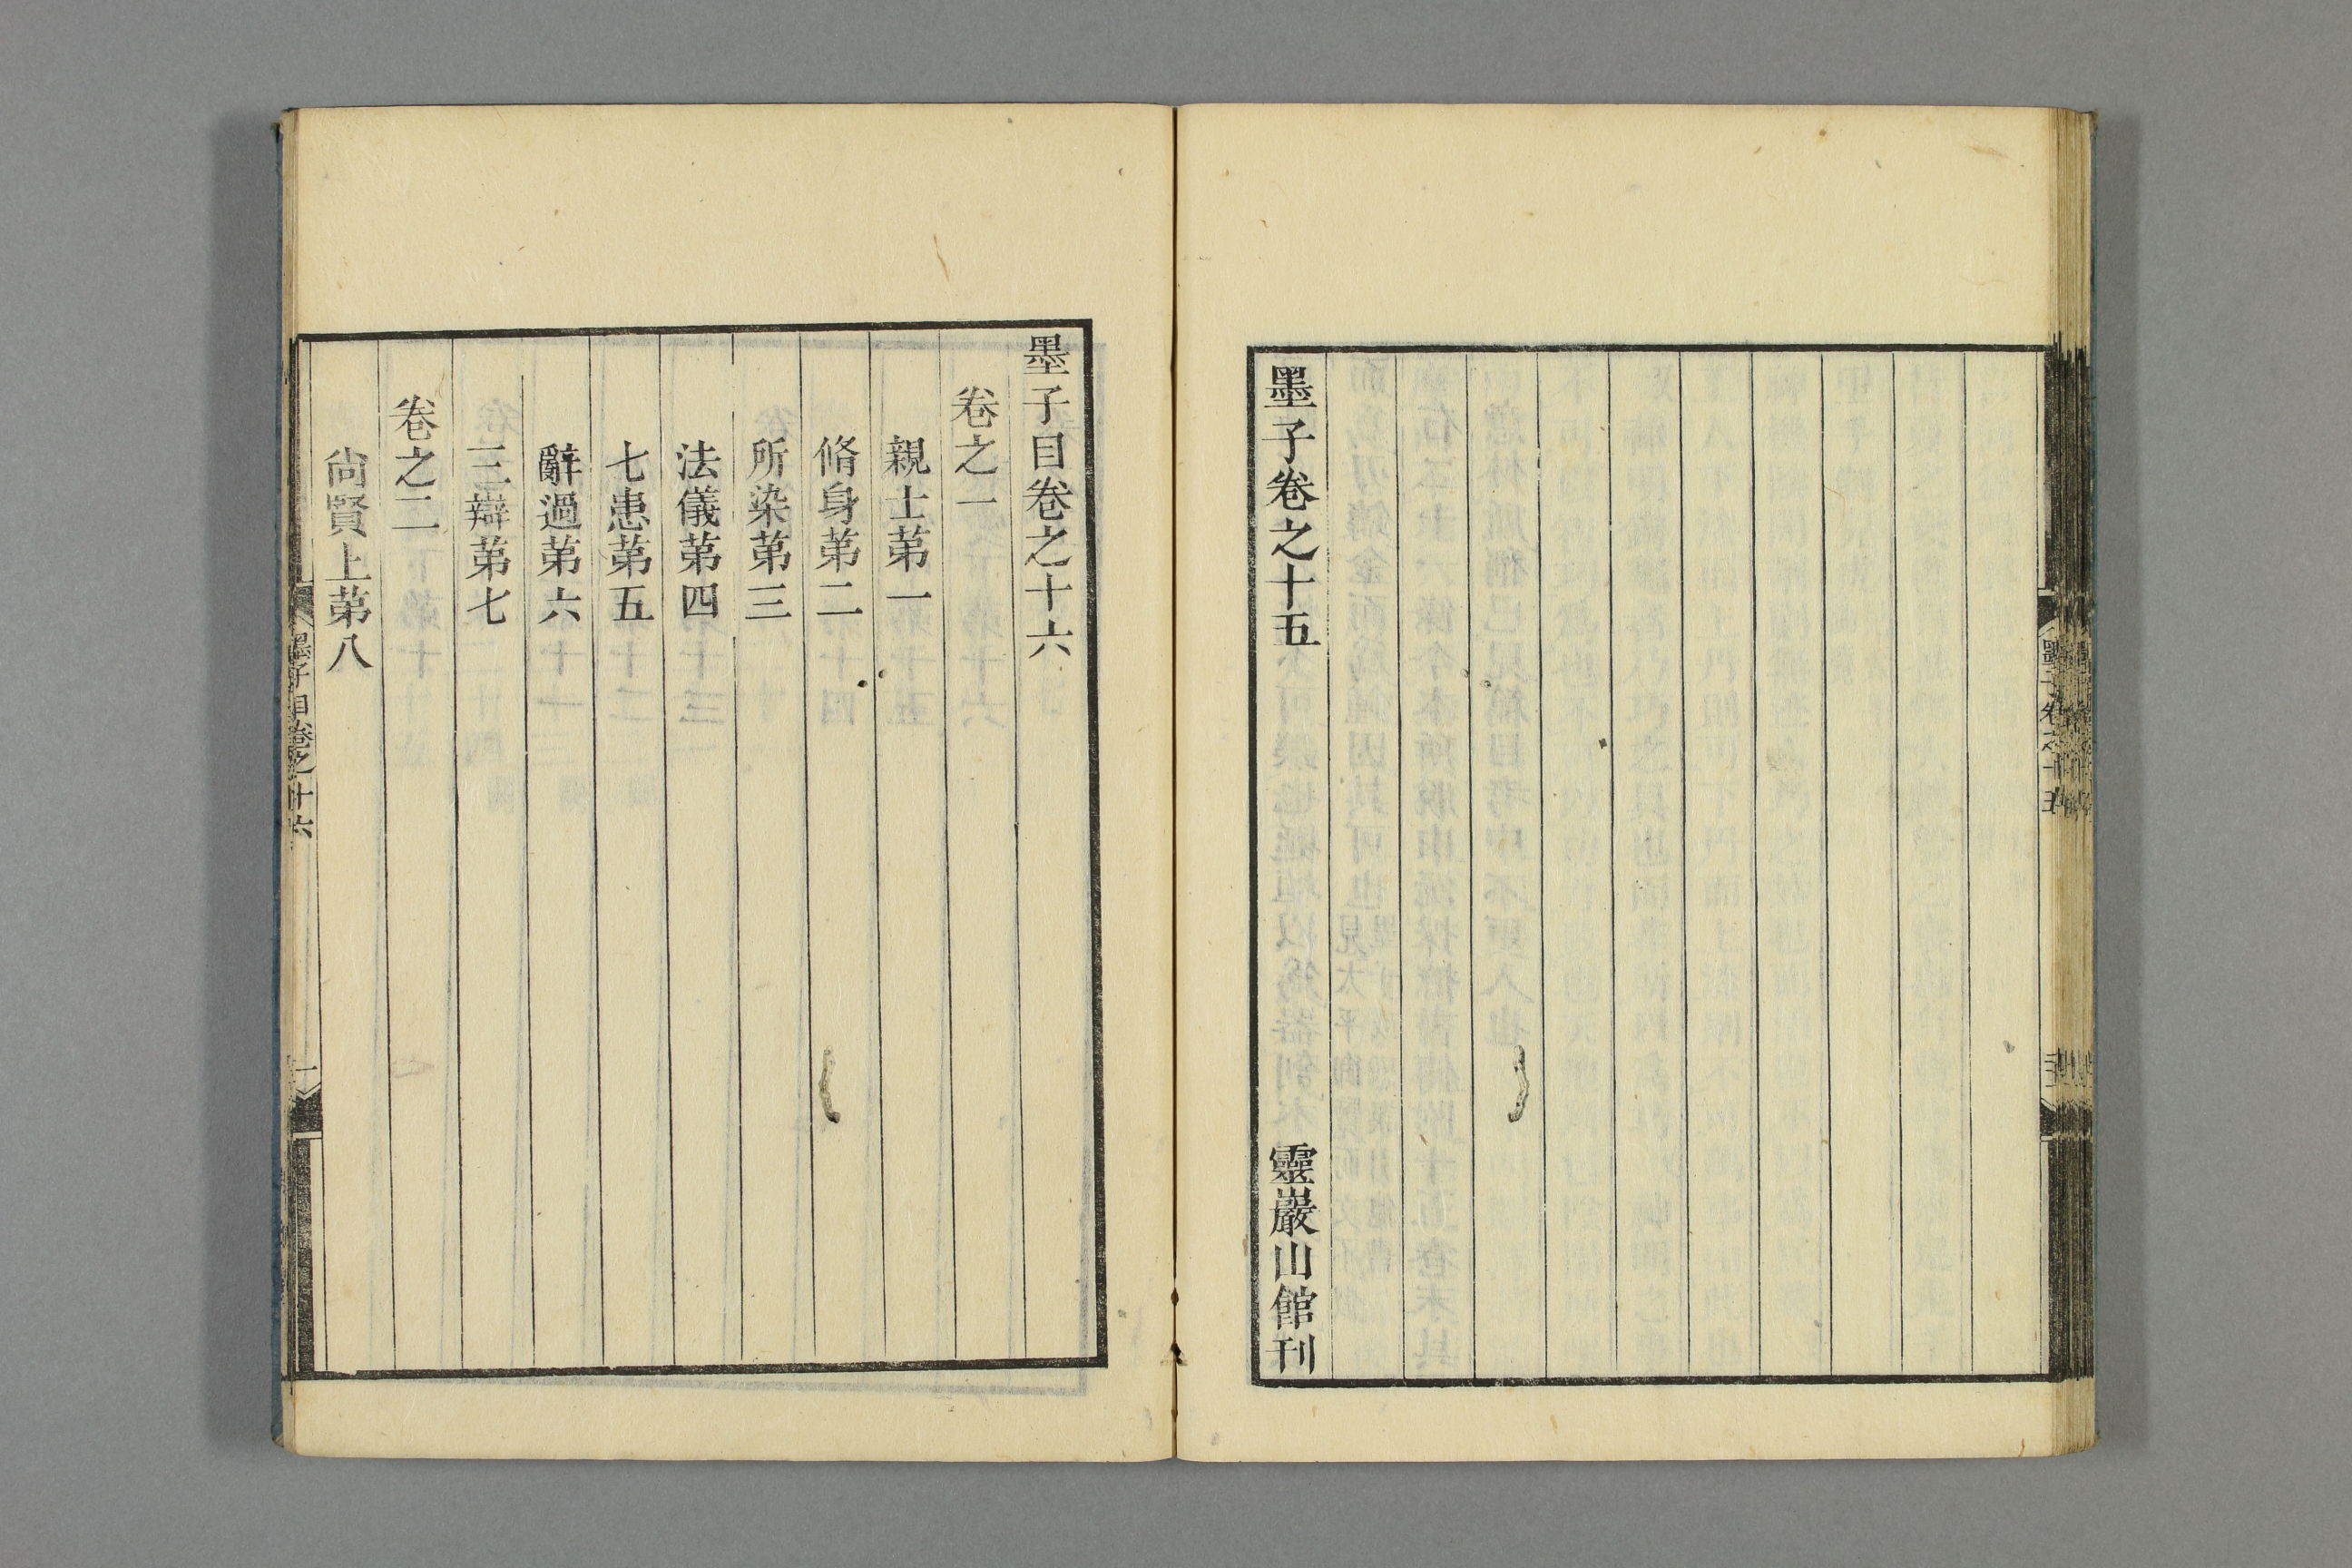 墨子卷之十五
靈巖山館刊
墨子目卷之十六
卷之一
親士第一
脩身第二
所染第三
法儀第四
七患第五
辭過第六
三辯第七
卷之二
尙賢上第八
墨子目卷之十六
一